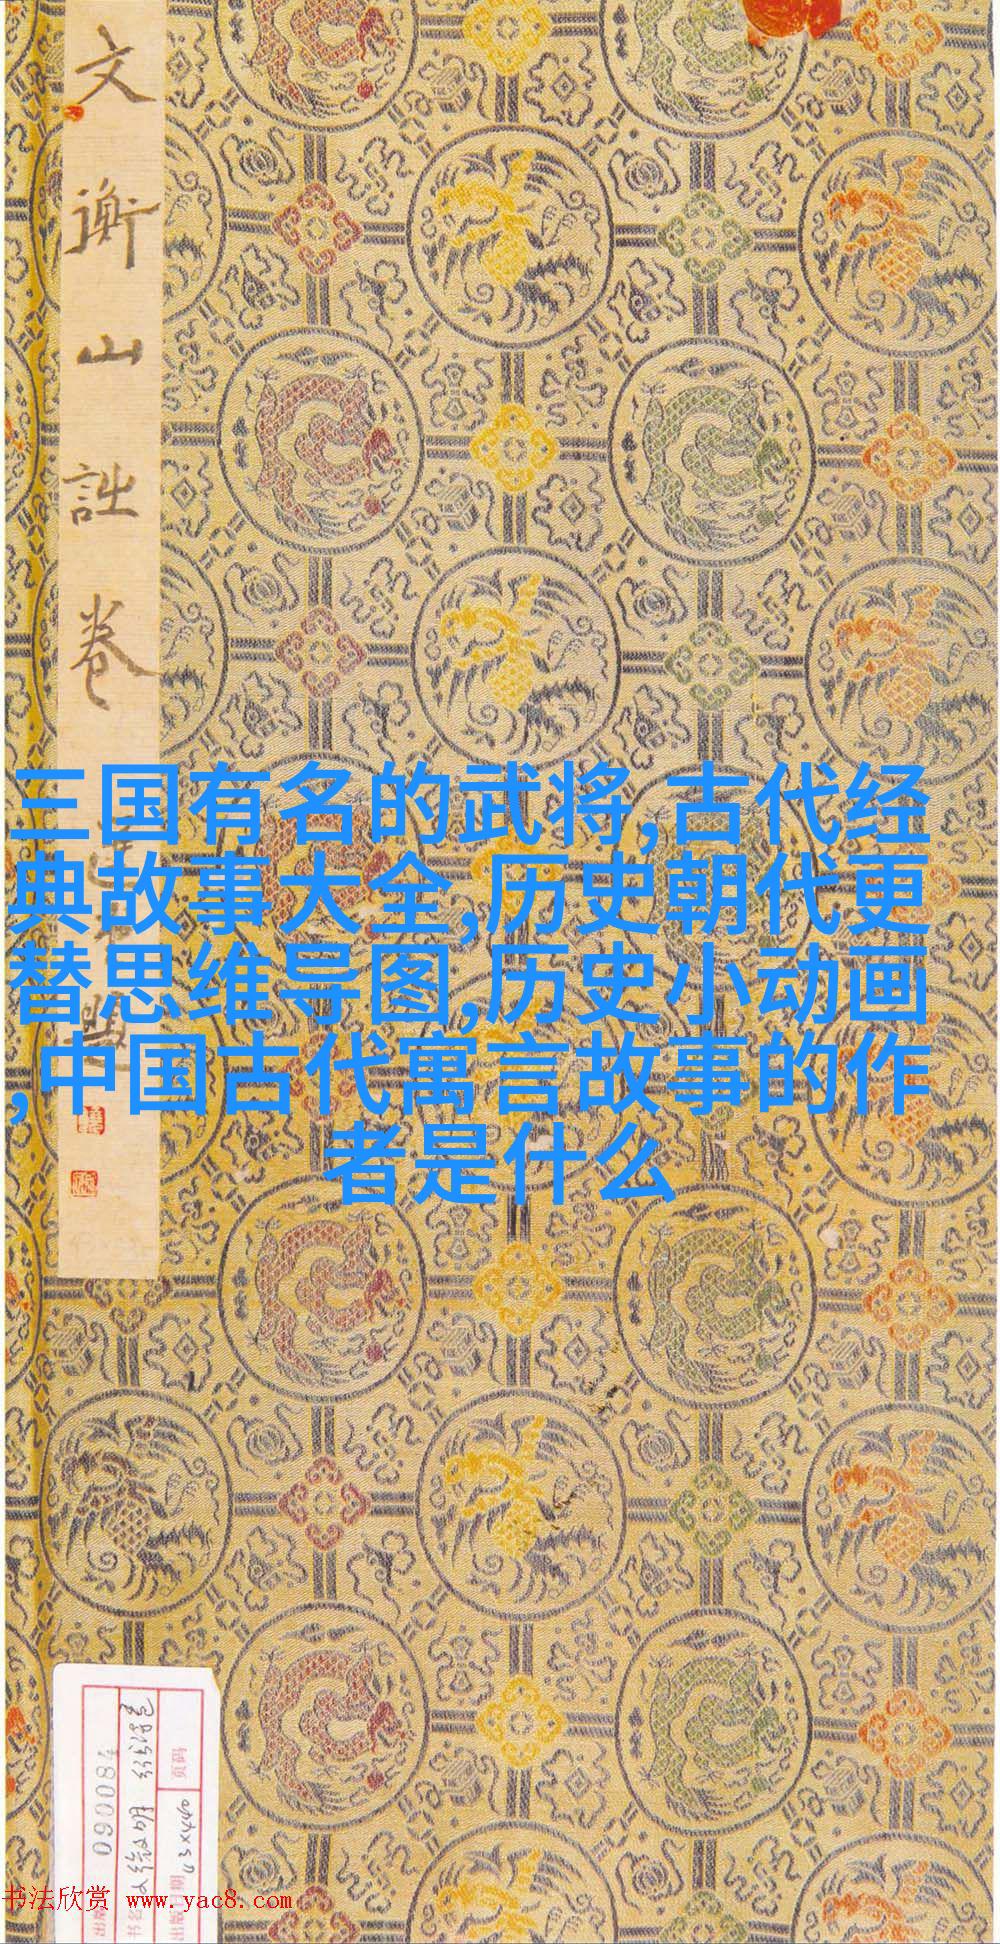 文衡山詩卷
三国有名的武将,古代经
典故事大全,历史朝代更
替思维导图,历史小动画
,中国古代寓言故事的作
者是什么
090084
页码
43×440
书法欣赏 www.yac8.com